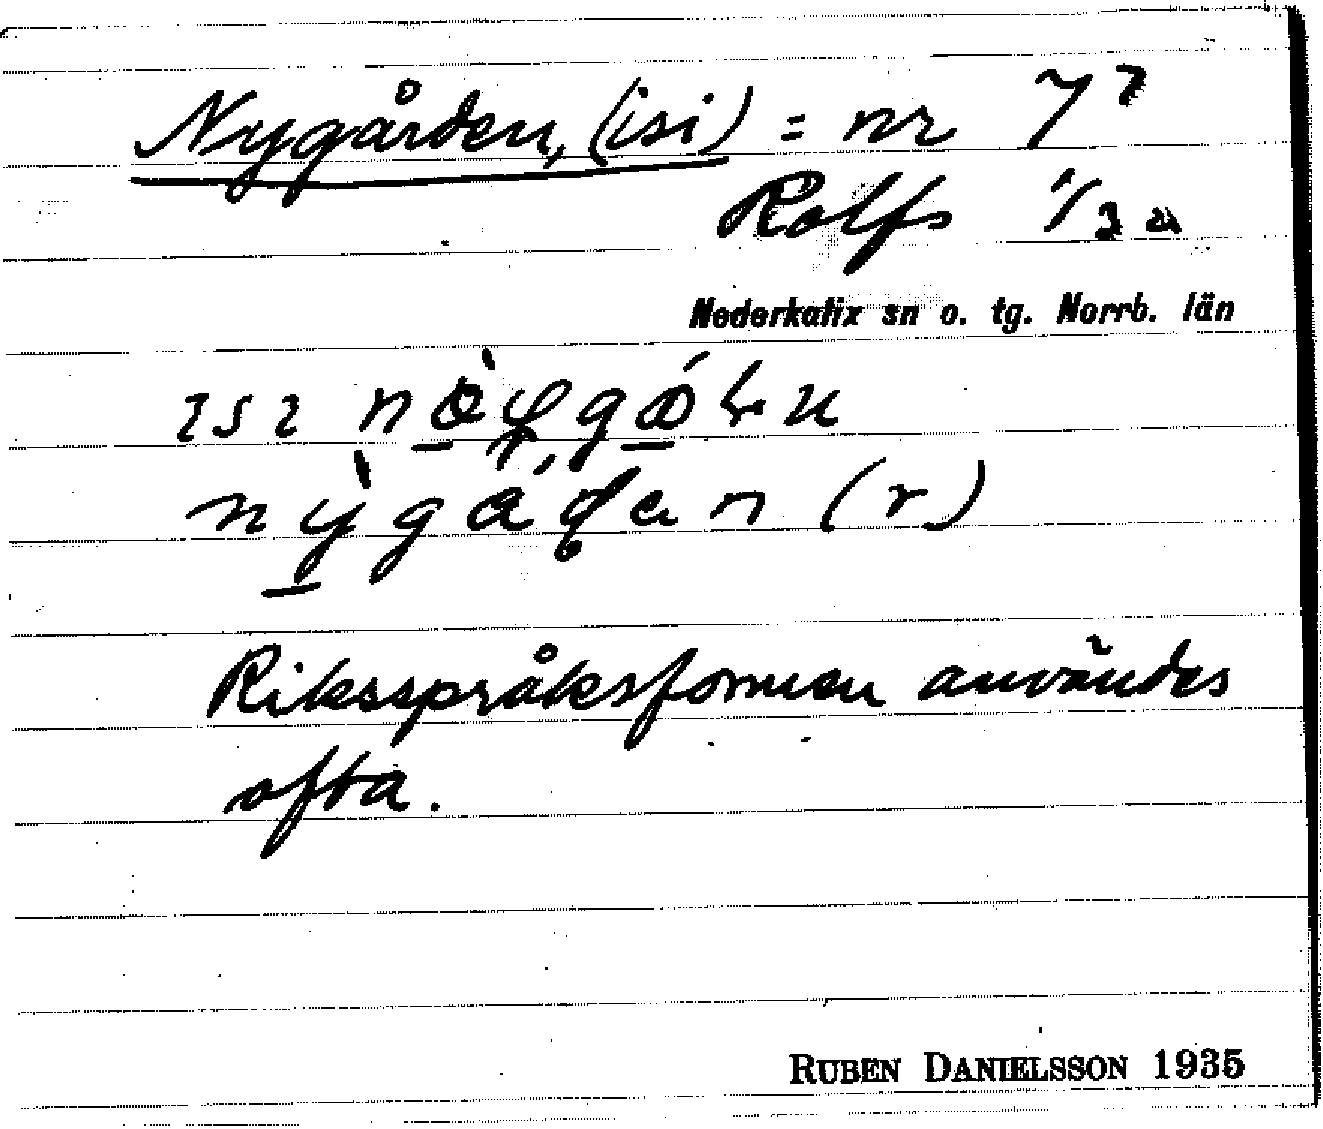 Nygården, (isi) = nr 7⁷
Rolfs 1/32
Nederkalix sn o. tg. Norrb. län
ısı
(r)
Riksspråksformen användes
ofta.
RUBEN DANIELSSON 1935